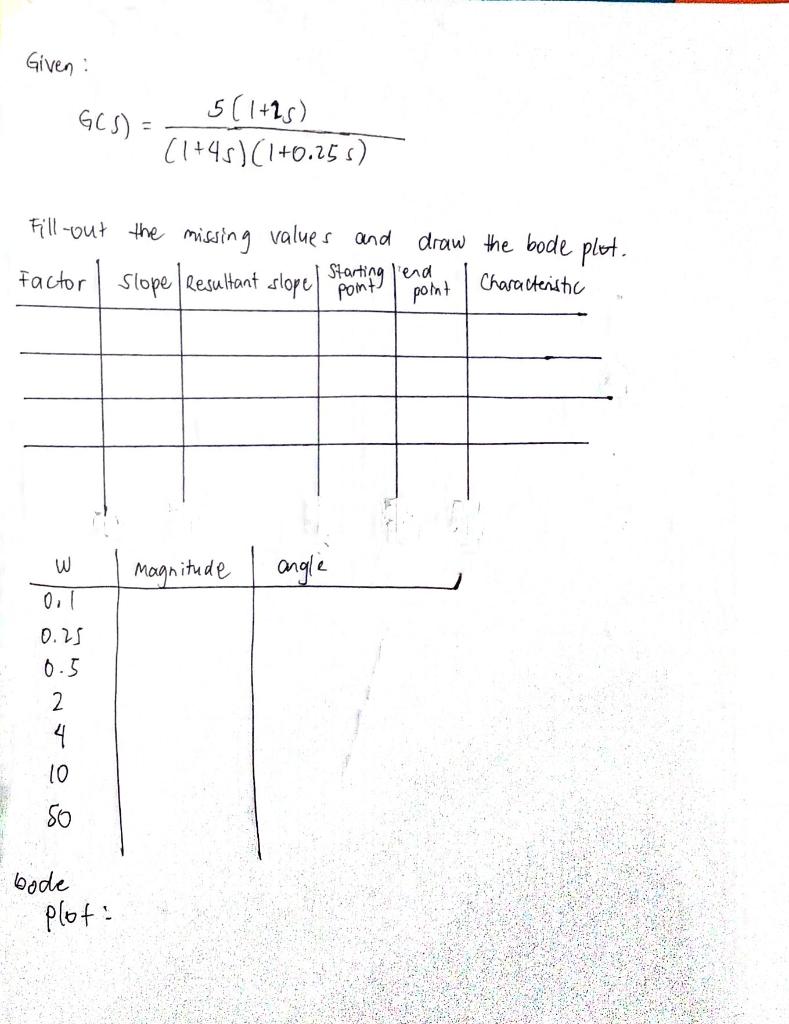 Given :
G(s) = 5(1+2s)
(1+4s)(1+0.25s)
Fill-out the missing values and draw the bode plot.
Factor Slope Resultant slope Starting point end point Characteristic
W magnitude angle
0.1
0.25
0.5
2
4
10
50
bode
plot :